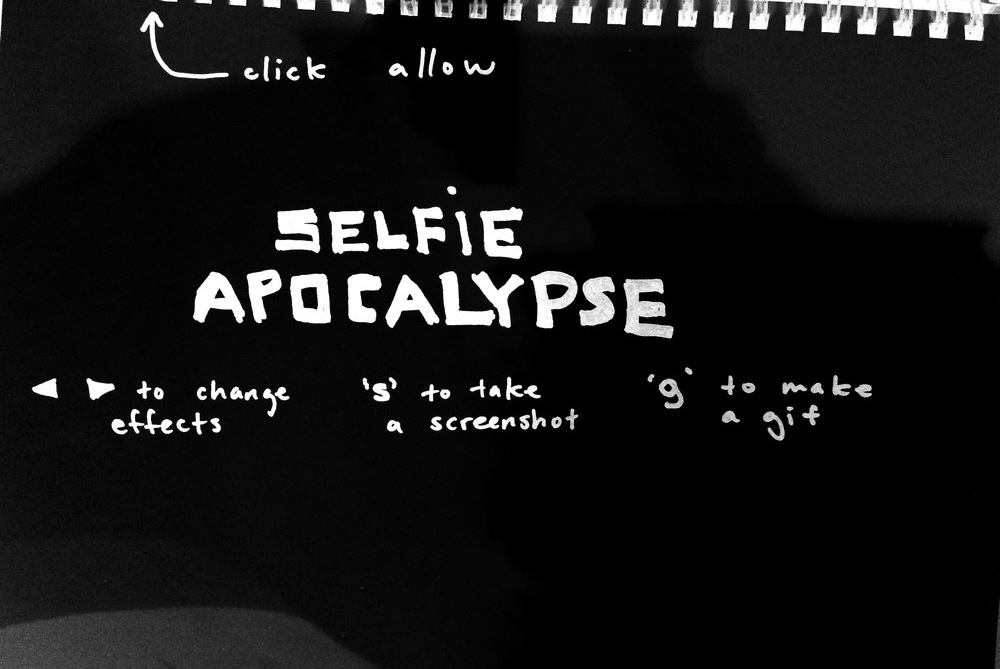 click allow
SELFiE
APOCALYPSE
◀ ▶ to change
effects
's' to take
a screenshot
'g' to make
a gif